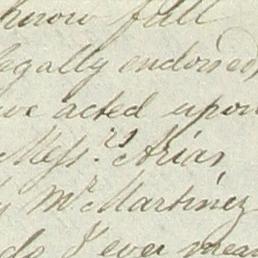 know full
legally endorsed,
have acted upon
Mess.rs Arias
by Mr. Martinez
do I ever mean